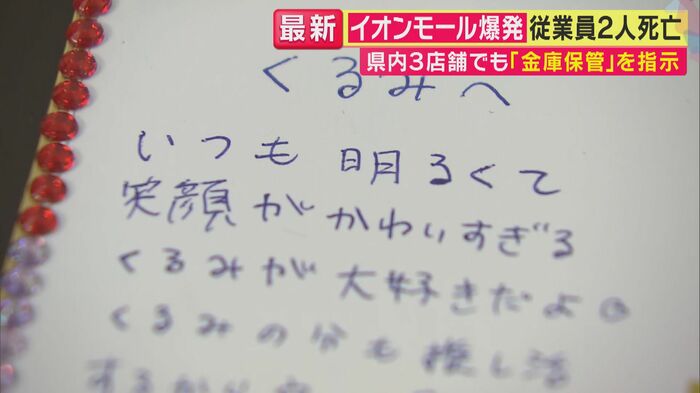 最新 イオンモール爆発 従業員2人死亡
県内3店舗でも「金庫保管」を指示
くるみへ
いつも 明るくて
笑顔がかわいすぎる
くるみが大好きだよ
くるみの分も推し活
するから